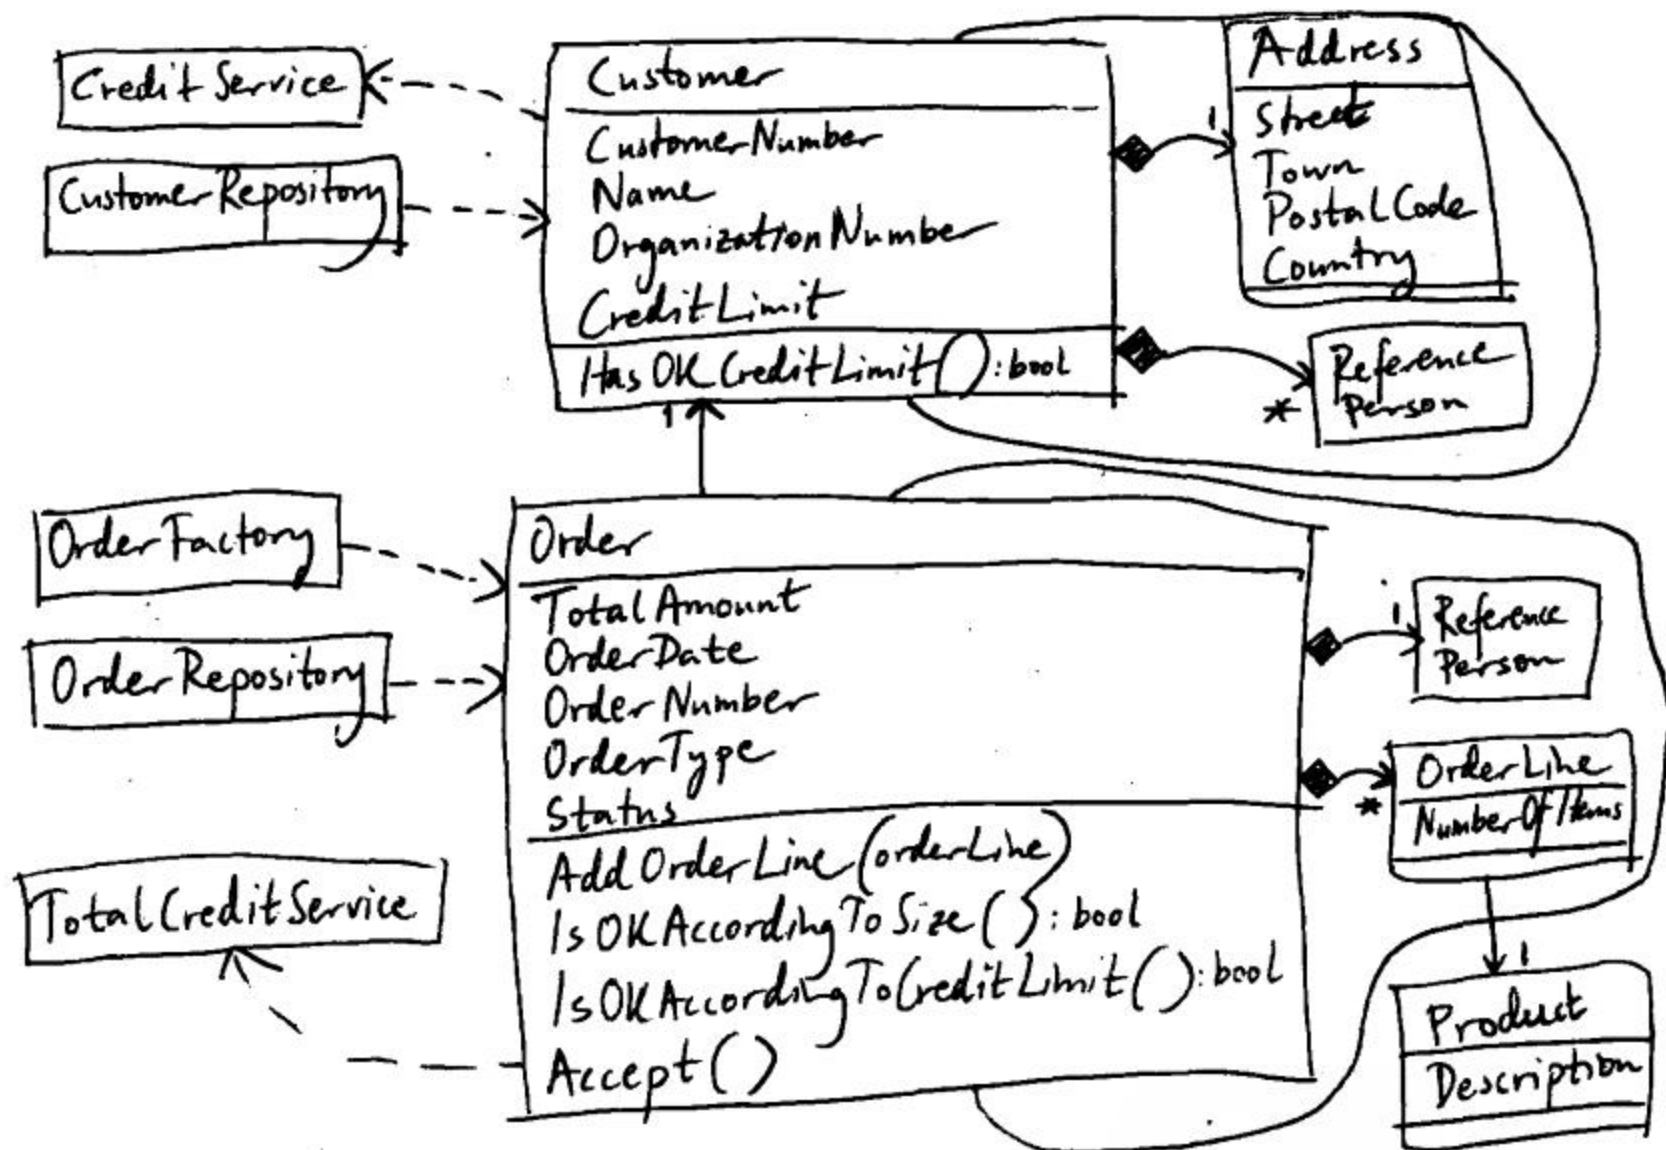 CreditService
CustomerRepository
Customer
CustomerNumber
Name
OrganizationNumber
CreditLimit
HasOKCreditLimit():bool
1
1
Address
Street
Town
PostalCode
Country
*
Reference
Person
OrderFactory
OrderRepository
TotalCreditService
Order
TotalAmount
OrderDate
OrderNumber
OrderType
Status
AddOrderLine(orderLine)
IsOKAccordingToSize():bool
IsOKAccordingToCreditLimit():bool
Accept()
1
Reference
Person
*
OrderLine
NumberOfItems
1
Product
Description